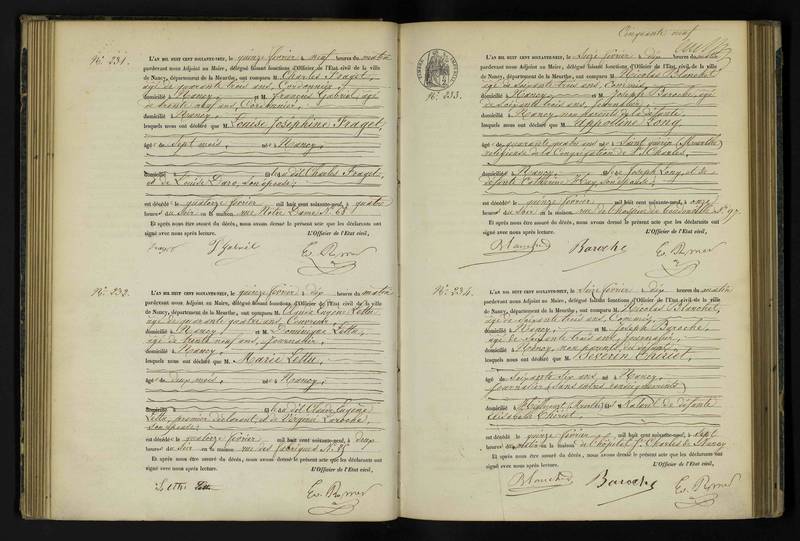 N.° 231.
L'AN MIL HUIT CENT SOIXANTE-NEUF, le quinze février à neuf heures du matin
pardevant nous Adjoint au Maire, délégué faisant fonctions d'Officier de l'Etat civil de la ville
de Nancy, département de la Meurthe, ont comparu M. Charles Fraget,
âgé de quarante trois ans, Cordonnier,
domicilié à Nancy, et M. François Gabriel, âgé
de trente neuf ans, Cordonnier,
domicilié à Nancy,
lesquels nous ont déclaré que M. Louise Joséphine Fraget,
âgé de sept mois, né à Nancy,
domicilié à fille de Charles Fraget,
et de Louise Daro, son épouse;
est décédé le quatorze février mil huit cent soixante-neuf, à quatre
heures du soir en la maison rue Notre Dame N.° 68
Et après nous être assuré du décès, nous avons dressé le présent acte que les déclarants ont
signé avec nous après lecture.
L'Officier de l'Etat civil,
Fraget F Gabriel Ev. Romer
N.° 232.
L'AN MIL HUIT CENT SOIXANTE-NEUF, le quinze février à dix heures du matin
pardevant nous Adjoint au Maire, délégué faisant fonctions d'Officier de l'Etat civil de la ville
de Nancy, département de la Meurthe, ont comparu M. Eugène Lettu,
âgé de quarante quatre ans, Couvreur,
domicilié à Nancy, et M. Dominique Lettu,
âgé de trente neuf ans, journalier,
domicilié à Nancy,
lesquels nous ont déclaré que M. Marie Lettu,
âgé de deux mois, né à Nancy,
domicilié à fille de Claude Eugène
Lettu, premier déclarant, et de Virginie
son épouse;
est décédé le quatorze février mil huit cent soixante-neuf, à deux
heures du soir en la maison rue des fabriques N.° 85
Et après nous être assuré du décès, nous avons dressé le présent acte que les déclarants ont
signé avec nous après lecture.
L'Officier de l'Etat civil,
Lettu Lettu Ev. Romer
Cinquante neuf
N.° 233.
L'AN MIL HUIT CENT SOIXANTE-NEUF, le seize février à dix heures du matin
pardevant nous Adjoint au Maire, délégué faisant fonctions d'Officier de l'Etat civil de la ville
de Nancy, département de la Meurthe, ont comparu M. Nicolas Blanchet,
âgé de soixante trois ans, Commis,
domicilié à Nancy, et M. Joseph Baroche, âgé
de soixante trois ans, journalier,
domicilié à Nancy, non parents de la défunte,
lesquels nous ont déclaré que M. Appoline Lony
âgé de quarante quatre ans née à Saint Quirin (Meurthe)
religieuse de la Congrégation de St Charles,
domicilié à Nancy, fille de Joseph Lony, et de
défunte Catherine Huy, son épouse;
est décédé le quinze février mil huit cent soixante-neuf, à onze
heures du soir en la maison rue de l'hospice N.° 97.
Et après nous être assuré du décès, nous avons dressé le présent acte que les déclarants ont
signé avec nous après lecture.
L'Officier de l'Etat civil,
Blanchet Baroche Ev. Romer
N.° 234.
L'AN MIL HUIT CENT SOIXANTE-NEUF, le seize février à dix heures du matin
pardevant nous Adjoint au Maire, délégué faisant fonctions d'Officier de l'Etat civil de la ville
de Nancy, département de la Meurthe, ont comparu M. Nicolas Blanchet,
âgé de soixante trois ans, Commis,
domicilié à Nancy, et M. Joseph Baroche,
âgé de soixante trois ans, journalier,
domicilié à Nancy, non parents du défunt,
lesquels nous ont déclaré que M. Séverin Thiriet,
âgé de soixante six ans né à Nancy,
journalier (sans autres renseignements)
domicilié à (Meurthe) fils Naturel de défunte
Elisabeth Thiriet,
est décédé le quinze février mil huit cent soixante-neuf, à sept
heures du matin en la maison de l'hôpital St Charles de Nancy
Et après nous être assuré du décès, nous avons dressé le présent acte que les déclarants ont
signé avec nous après lecture.
L'Officier de l'Etat civil,
Blanchet Baroche Ev. Romer